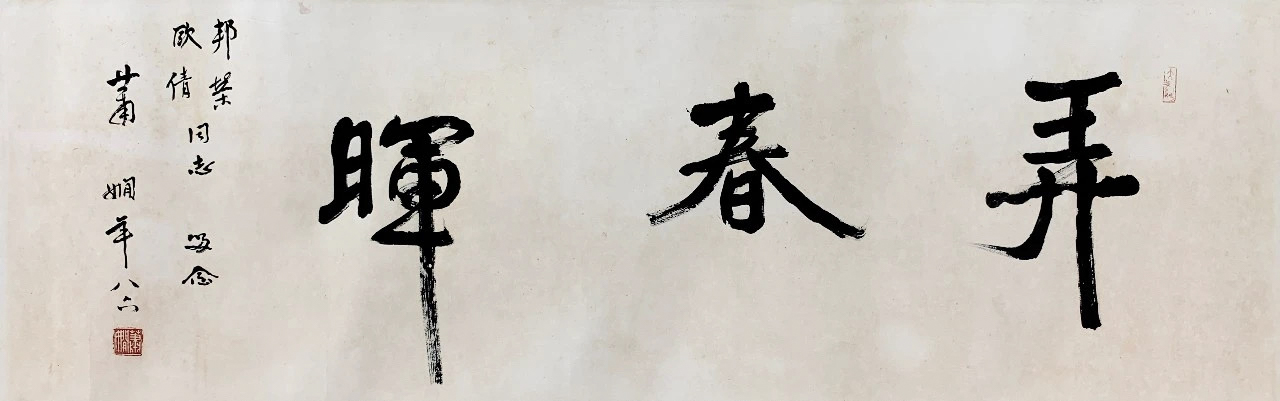 弄春暉
邦桀
欧倩
同志 留念
蕭嫻年八六
蕭嫻